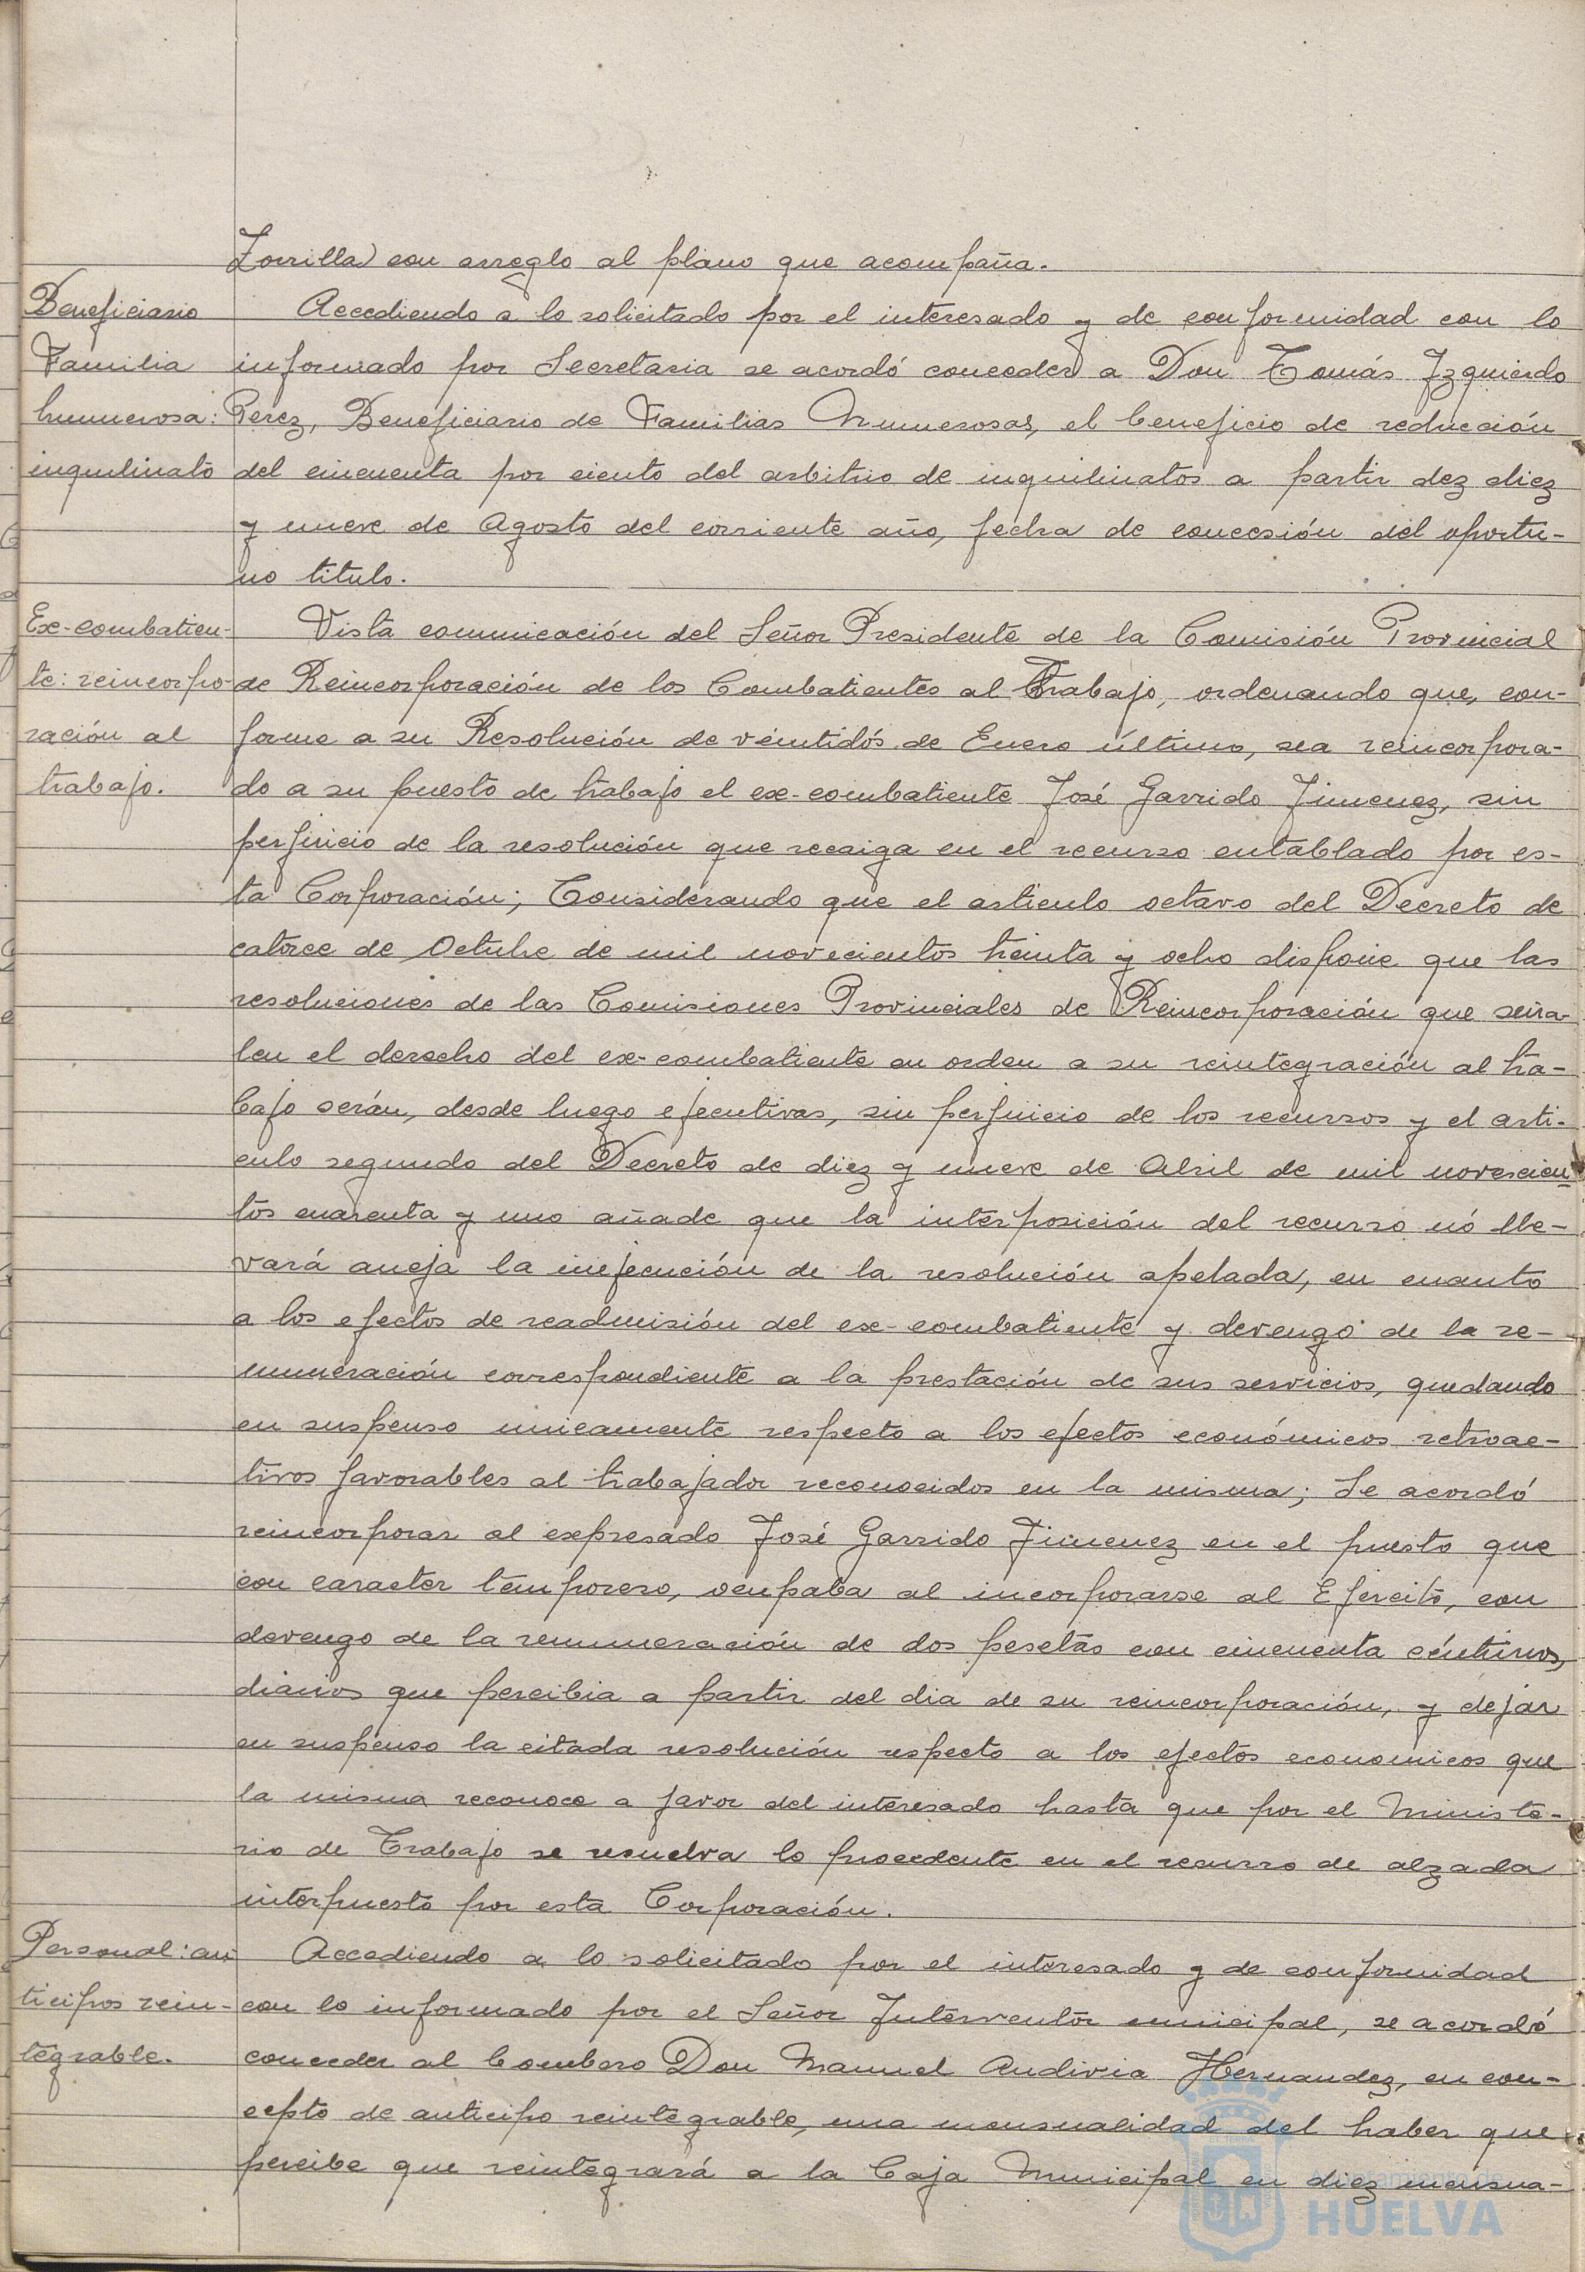 Zorrilla) con arreglo al plano que acompaña.
Beneficiario
Familia
numerosa:
inquilinato
Accediendo a lo solicitado por el interesado y de conformidad con lo
informado por Secretaria se acordó conceder a Don Tomás Izquierdo
Perez, Beneficiario de Familias Numerosas, el beneficio de reducción
del cincuenta por ciento del arbitrio de inquilinatos a partir dez diez
y nueve de Agosto del corriente año, fecha de concesión del oportu-
no titulo.
Ex-combatien-
te: reincorpo-
ración al
trabajo.
Vista comunicación del Señor Presidente de la Comisión Provincial
de Reincorporación de los Combatientes al Trabajo, ordenando que, con-
forme a su Resolución de veintidós de Enero último, sea reincorpora-
do a su puesto de trabajo el ex-combatiente José Garrido Jimenez, sin
perjuicio de la resolución que recaiga en el recurso entablado por es-
ta Corporación; Considerando que el articulo octavo del Decreto de
catorce de Octubre de mil novecientos treinta y ocho dispone que las
resoluciones de las Comisiones Provinciales de Reincorporación que seña-
len el derecho del ex-combatiente en orden a su reintegración al tra-
bajo serán, desde luego ejecutivas, sin perjuicio de los recursos y el arti-
culo segundo del Decreto de diez y nueve de Abril de mil novescien-
tos cuarenta y uno añade que la interposición del recurso nó lle-
vará aneja la inejecución de la resolución apelada, en cuanto
a los efectos de readmisión del ex-combatiente y devengo de la re-
muneración correspondiente a la prestación de sus servicios, quedando
en suspenso unicamente respecto a los efectos económicos retroac-
tivos favorables al trabajador reconocidos en la misma; Se acordó
reincorporar al expresado José Garrido Jimenez en el puesto que
con caracter temporero, ocupaba al incorporarse al Ejército, con
devengo de la remuneración de dos pesetas con cincuenta céntimos,
diarios que percibia a partir del dia de su reincorporación, y dejar
en suspenso la citada resolución respecto a los efectos economicos que
la misma reconoce a favor del interesado hasta que por el Ministe-
rio de Trabajo se resuelva lo procedente en el recurso de alzada
interpuesto por esta Corporación.
Personal: an-
ticipos rein-
tegrable.
Accediendo a lo solicitado por el interesado y de conformidad
con lo informado por el Señor Interventor municipal, se acordó
conceder al bombero Don Manuel Andivia Hernandez, en con-
cepto de anticipo reintegrable, una mensualidad del haber que
percibe que reintegrará a la Caja Municipal en diez mensua-
Ayuntamiento de
HUELVA